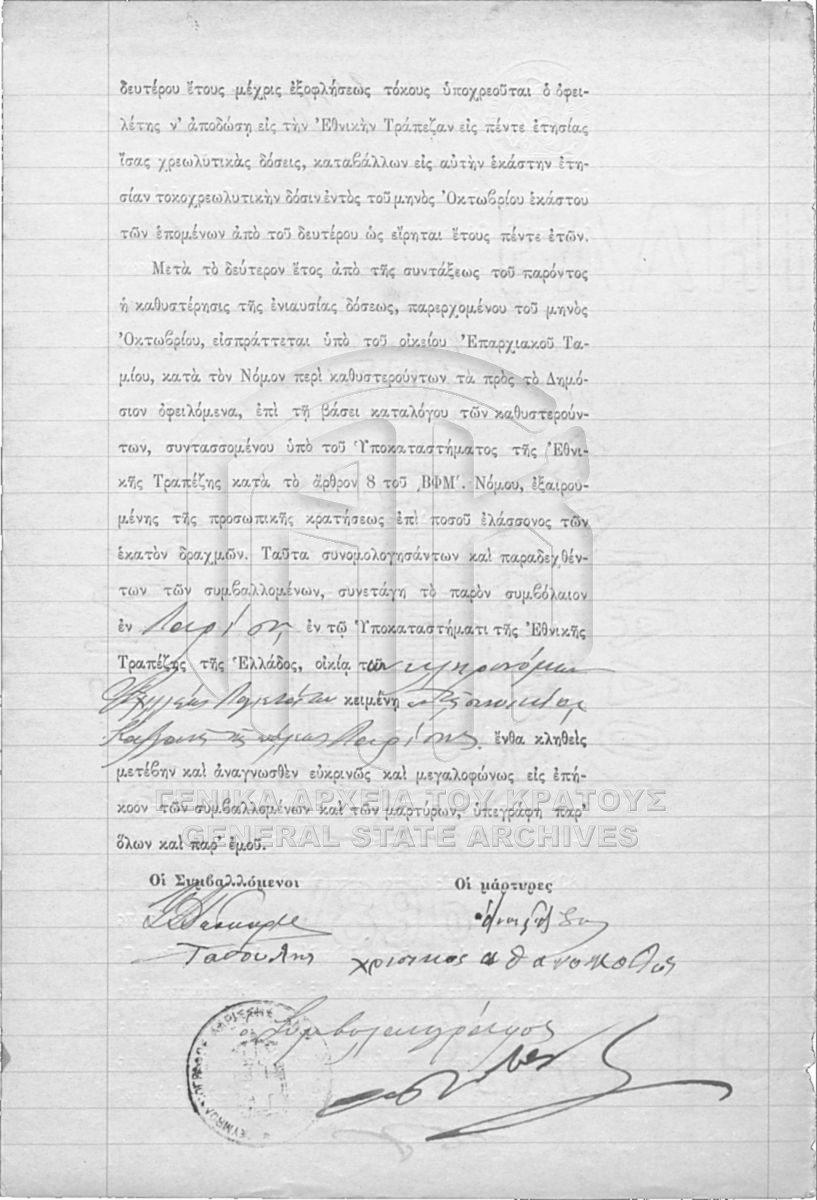 δευτέρου ἔτους μέχρις ἐξοφλήσεως τόκους ὑποχρεοῦται ὁ ὀφει-
λέτης ν' ἀποδώσῃ εἰς τὴν Ἐθνικὴν Τράπεζαν εἰς πέντε ἐτησίας
ἴσας χρεωλυτικὰς δόσεις, καταβάλλων εἰς αὐτὴν ἑκάστην ἐτη-
σίαν τοκοχρεωλυτικὴν δόσιν ἐντὸς τοῦ μηνὸς Ὀκτωβρίου ἑκάστου
τῶν ἑπομένων ἀπὸ τοῦ δευτέρου ὡς εἴρηται ἔτους πέντε ἐτῶν.
Μετὰ τὸ δεύτερον ἔτος ἀπὸ τῆς συντάξεως τοῦ παρόντος
ἡ καθυστέρησις τῆς ἐνιαυσίας δόσεως, παρερχομένου τοῦ μηνὸς
Ὀκτωβρίου, εἰσπράττεται ὑπὸ τοῦ οἰκείου Ἐπαρχιακοῦ Τα-
μίου, κατὰ τὸν Νόμον περὶ καθυστερούντων τὰ πρὸς τὸ Δημό-
σιον ὀφειλόμενα, ἐπὶ τῇ βάσει καταλόγου τῶν καθυστερούν-
των, συντασσομένου ὑπὸ τοῦ Ὑποκαταστήματος τῆς Ἐθνι-
κῆς Τραπέζης κατὰ τὸ ἄρθρον 8 τοῦ ͵ΒΦΜʹ. Νόμου, ἐξαιρου-
μένης τῆς προσωπικῆς κρατήσεως ἐπὶ ποσοῦ ἐλάσσονος τῶν
ἑκατὸν δραχμῶν. Ταῦτα συνομολογησάντων καὶ παραδεχθέν-
των τῶν συμβαλλομένων, συνετάγη τὸ παρὸν συμβόλαιον
ἐν Λαρίσῃ ἐν τῷ Ὑποκαταστήματι τῆς Ἐθνικῆς
Τραπέζης τῆς Ἑλλάδος, οἰκίᾳ τῶν κληρονόμων
κειμένῃ
τῆς πόλεως Λαρίσης ἔνθα κληθεὶς
μετέβην καὶ ἀναγνωσθὲν εὐκρινῶς καὶ μεγαλοφώνως εἰς ἐπή-
κοον τῶν συμβαλλομένων καὶ τῶν μαρτύρων, ὑπεγράφη παρ'
ὅλων καὶ παρ' ἐμοῦ.
ΓΕΝΙΚΑ ΑΡΧΕΙΑ ΤΟΥ ΚΡΑΤΟΥΣ
GENERAL STATE ARCHIVES
Οἱ Συμβαλλόμενοι Οἱ μάρτυρες
ὁ Συμβολαιογράφος